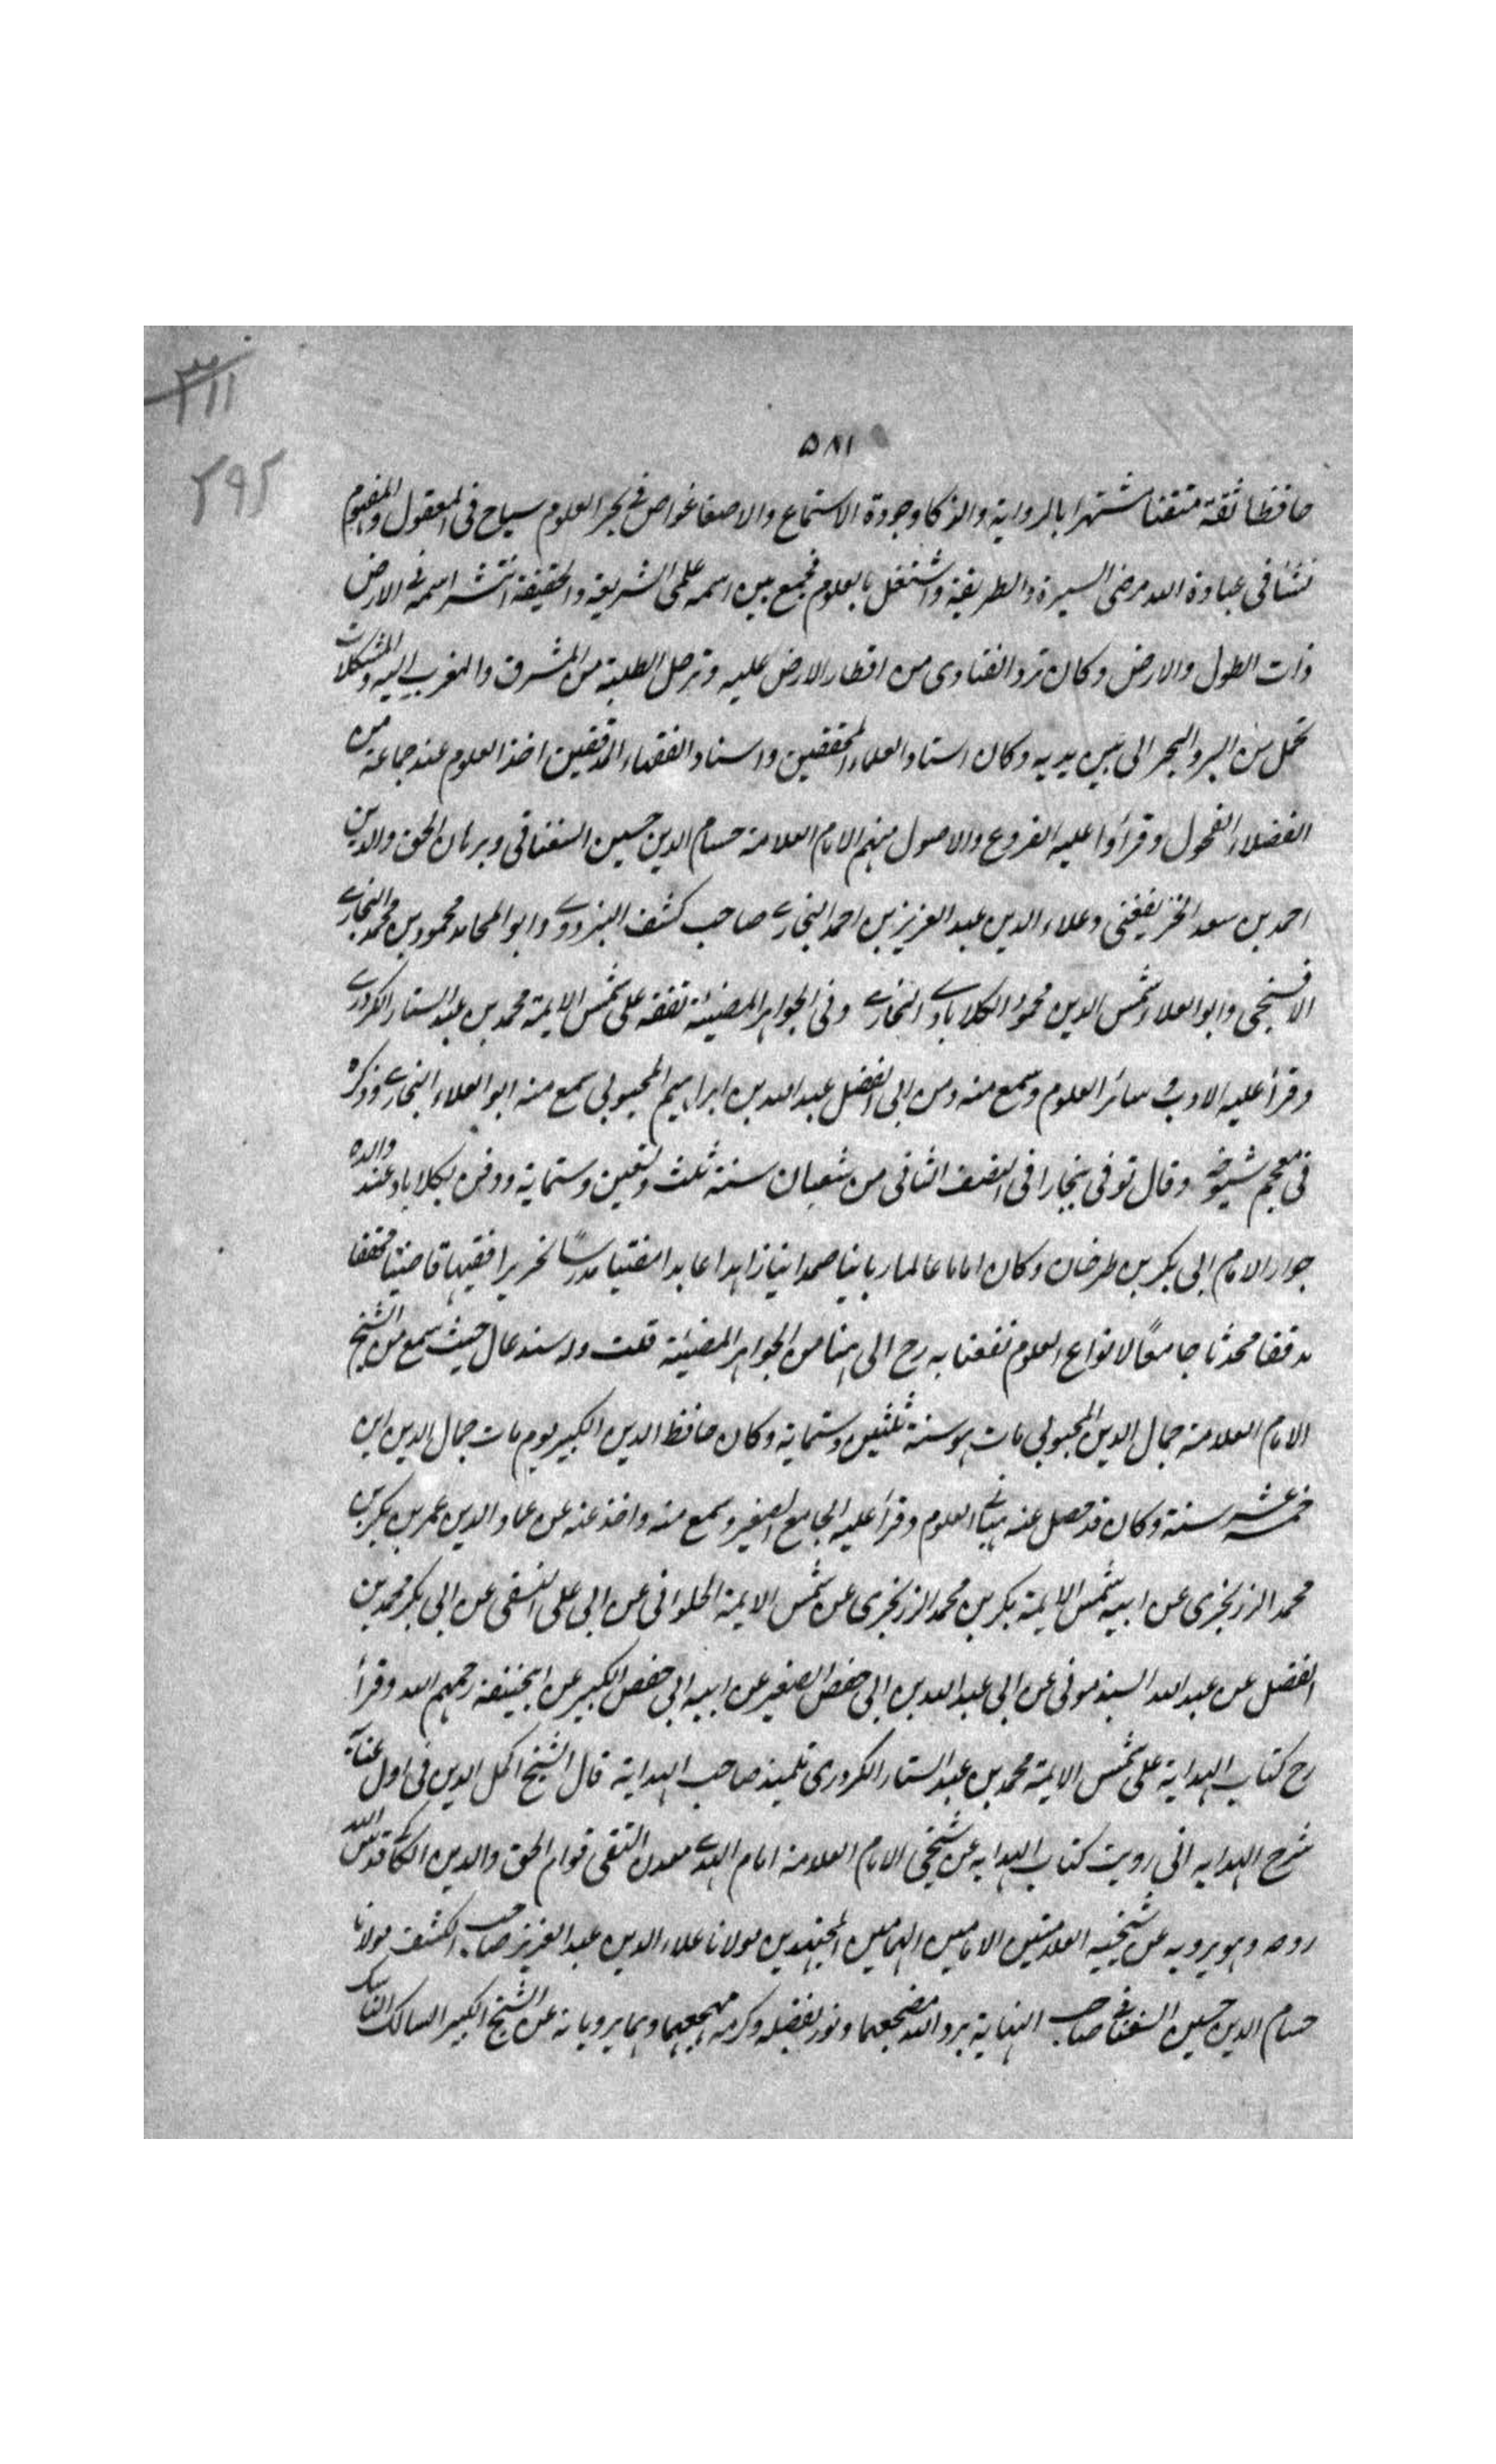 ٣١١
٢٩٢
٥٨١
حافظا ثقة متقنا مشتهرا بالرواية والذكا وجودة الاستماع والاصغا غواص فى بحر العلوم سياح فى المعقول والمفهوم
نشأ فى عبادة الله مرضى السيرة والطريقة واشتغل بالعلوم فجمع بين اسمه علمى الشريعة والحقيقة انتشر اسمه فى الارض
ذات الطول والارض وكان ترد الفتاوى من اقطار الارض عليه وترحل الطلبة من المشرق والمغرب اليه والمشكلات
تحمل من البر والبحر الى بين يديه وكان استاد العلماء المحققين واستاد الفقهاء المدققين اخذ العلوم عند جماعة من
الفضلاء الفحول وقرأوا عليه الفروع والاصول منهم الامام العلامة حسام الدين حسين السغناقى وبرهان الحق والدين
احمد بن سعد الخزيفغنى وعلاء الدين عبد العزيز بن احمد البخارى صاحب كشف البزدوى وابو المحامد محمود بن محمد البخارى
الافسنجى وابو العلا شمس الدين محمود الكلابادى البخارى وفى الجواهر المضيئة تفقه على شمس الايمة محمد بن عبد الستار الكردرى
وقرأ عليه الادب و سائر العلوم وسمع منه ومن ابى الفضل عبد الله بن ابراهيم المحبوبى سمع منه ابو العلاء البخارى وذكره
فى معجم شيوخه وقال توفى ببخارا فى النصف الثانى من شعبان سنة ثلث وتسعين وستماية ودفن بكلاباد عند والده
جوار الامام ابى بكر بن طرخان وكان اماما عالما ربانيا صمدانيا زاهدا عابدا مفتيا مدرسا نحريرا فقيها قاضيا محققا
مدققا محدثا جامعًا لانواع العلوم نفعنا به رح الى هنا من الجواهر المضيئة قلت وله سند عال حيث سمع من الشيخ
الامام العلامة جمال الدين المحبوبى مات هو سنة ثلثين وستماية وكان حافظ الدين الكبير يوم مات جمال الدين ابن
خمسة عشر سنة وكان قد حصل عنه العلوم وقرأ عليه الجامع الصغير وسمع منه واخذ عنه عن عماد الدين عمر بن بكر بن
محمد الزرنجرى عن ابيه شمس الايمة بكر بن محمد الزرنجرى عن شمس الايمة الحلوانى عن ابى على النسفى عن ابى بكر محمد بن
الفضل عن عبد الله السبذمونى عن ابى عبد الله بن ابى حفص الصغير عن ابيه ابى حفص الكبير عن ابيحنيفة رحمهم الله وقرأ
رح كتاب الهداية على شمس الايمة محمد بن عبد الستار الكردرى تلميذ صاحب الهداية قال الشيخ اكمل الدين فى اول عناية
شرح الهدايه انى رويت كتاب الهدايه عن شيخى الامام العلامة امام الهدى معدن التقى قوام الحق والدين الكاكى قدس الله
روحه وهو يرويه عن شيخيه العلامتين الامامين الهمامين المجتهدين مولانا علاء الدين عبد العزيز صاحب الكشف مولانا
حسام الدين حسين السغناقى صاحب النهاية برد الله مضجعهما ونور بفضله وكرمه مهجعهما وهما يرويانه عن الشيخ الكبير السالك الناسك